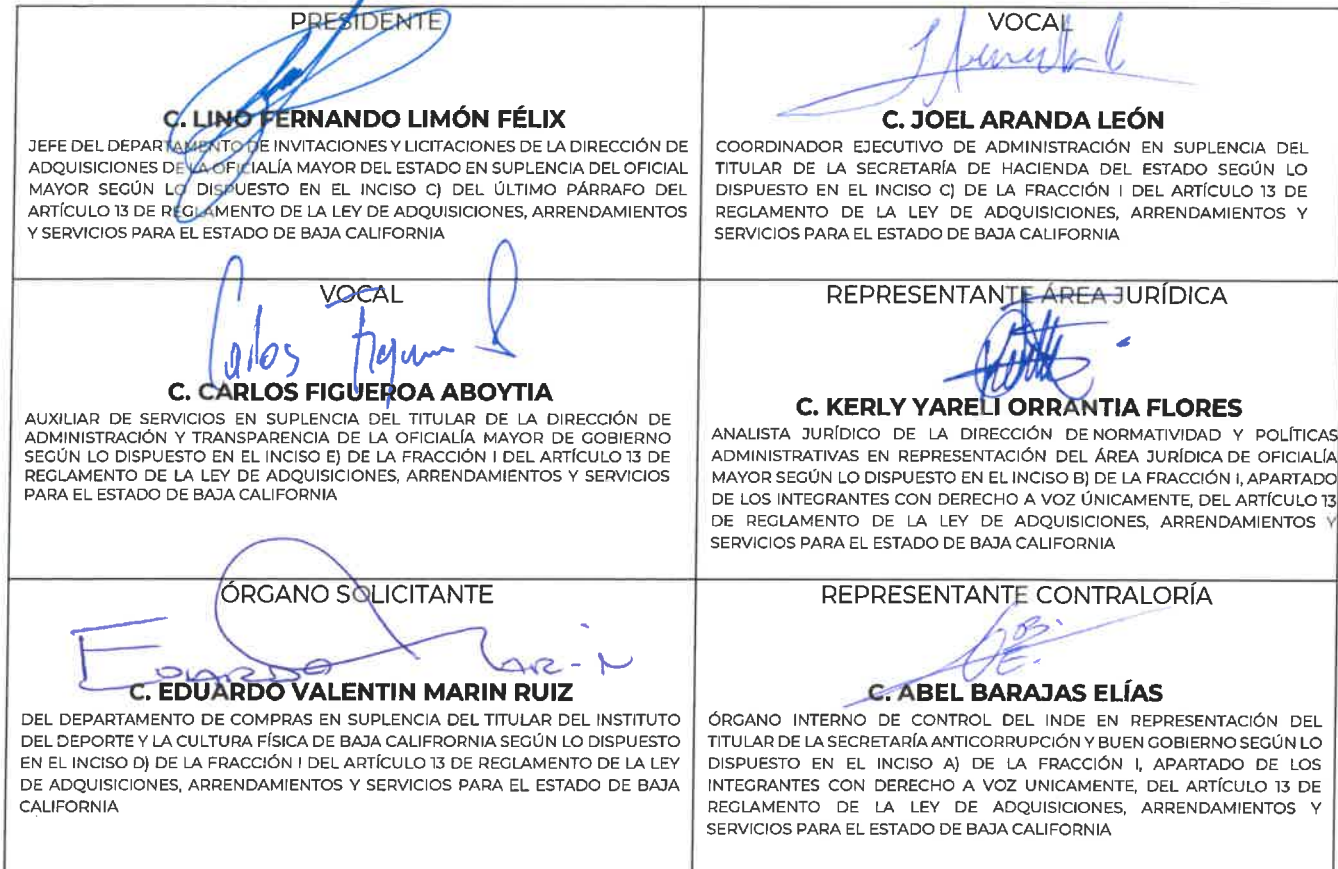 PRESIDENTE
C. LINO FERNANDO LIMÓN FÉLIX
JEFE DEL DEPARTAMENTO DE INVITACIONES Y LICITACIONES DE LA DIRECCIÓN DE
ADQUISICIONES DE LA OFICIALÍA MAYOR DEL ESTADO EN SUPLENCIA DEL OFICIAL
MAYOR SEGÚN LO DISPUESTO EN EL INCISO C) DEL ÚLTIMO PÁRRAFO DEL
ARTÍCULO 13 DE REGLAMENTO DE LA LEY DE ADQUISICIONES, ARRENDAMIENTOS
Y SERVICIOS PARA EL ESTADO DE BAJA CALIFORNIA
VOCAL
C. JOEL ARANDA LEÓN
COORDINADOR EJECUTIVO DE ADMINISTRACIÓN EN SUPLENCIA DEL
TITULAR DE LA SECRETARÍA DE HACIENDA DEL ESTADO SEGÚN LO
DISPUESTO EN EL INCISO C) DE LA FRACCIÓN I DEL ARTÍCULO 13 DE
REGLAMENTO DE LA LEY DE ADQUISICIONES, ARRENDAMIENTOS Y
SERVICIOS PARA EL ESTADO DE BAJA CALIFORNIA
VOCAL
Carlos Figueroa
C. CARLOS FIGUEROA ABOYTIA
AUXILIAR DE SERVICIOS EN SUPLENCIA DEL TITULAR DE LA DIRECCIÓN DE
ADMINISTRACIÓN Y TRANSPARENCIA DE LA OFICIALÍA MAYOR DE GOBIERNO
SEGÚN LO DISPUESTO EN EL INCISO E) DE LA FRACCIÓN I DEL ARTÍCULO 13 DE
REGLAMENTO DE LA LEY DE ADQUISICIONES, ARRENDAMIENTOS Y SERVICIOS
PARA EL ESTADO DE BAJA CALIFORNIA
REPRESENTANTE ÁREA JURÍDICA
C. KERLY YARELI ORRANTIA FLORES
ANALISTA JURÍDICO DE LA DIRECCIÓN DE NORMATIVIDAD Y POLÍTICAS
ADMINISTRATIVAS EN REPRESENTACIÓN DEL ÁREA JURÍDICA DE OFICIALÍA
MAYOR SEGÚN LO DISPUESTO EN EL INCISO B) DE LA FRACCIÓN I, APARTADO
DE LOS INTEGRANTES CON DERECHO A VOZ ÚNICAMENTE, DEL ARTÍCULO 13
DE REGLAMENTO DE LA LEY DE ADQUISICIONES, ARRENDAMIENTOS Y
SERVICIOS PARA EL ESTADO DE BAJA CALIFORNIA
ÓRGANO SOLICITANTE
EDUARDO MARIN
C. EDUARDO VALENTIN MARIN RUIZ
DEL DEPARTAMENTO DE COMPRAS EN SUPLENCIA DEL TITULAR DEL INSTITUTO
DEL DEPORTE Y LA CULTURA FÍSICA DE BAJA CALIFRORNIA SEGÚN LO DISPUESTO
EN EL INCISO D) DE LA FRACCIÓN I DEL ARTÍCULO 13 DE REGLAMENTO DE LA LEY
DE ADQUISICIONES, ARRENDAMIENTOS Y SERVICIOS PARA EL ESTADO DE BAJA
CALIFORNIA
REPRESENTANTE CONTRALORÍA
C. ABEL BARAJAS ELÍAS
ÓRGANO INTERNO DE CONTROL DEL INDE EN REPRESENTACIÓN DEL
TITULAR DE LA SECRETARÍA ANTICORRUPCIÓN Y BUEN GOBIERNO SEGÚN LO
DISPUESTO EN EL INCISO A) DE LA FRACCIÓN I, APARTADO DE LOS
INTEGRANTES CON DERECHO A VOZ UNICAMENTE, DEL ARTÍCULO 13 DE
REGLAMENTO DE LA LEY DE ADQUISICIONES, ARRENDAMIENTOS Y
SERVICIOS PARA EL ESTADO DE BAJA CALIFORNIA